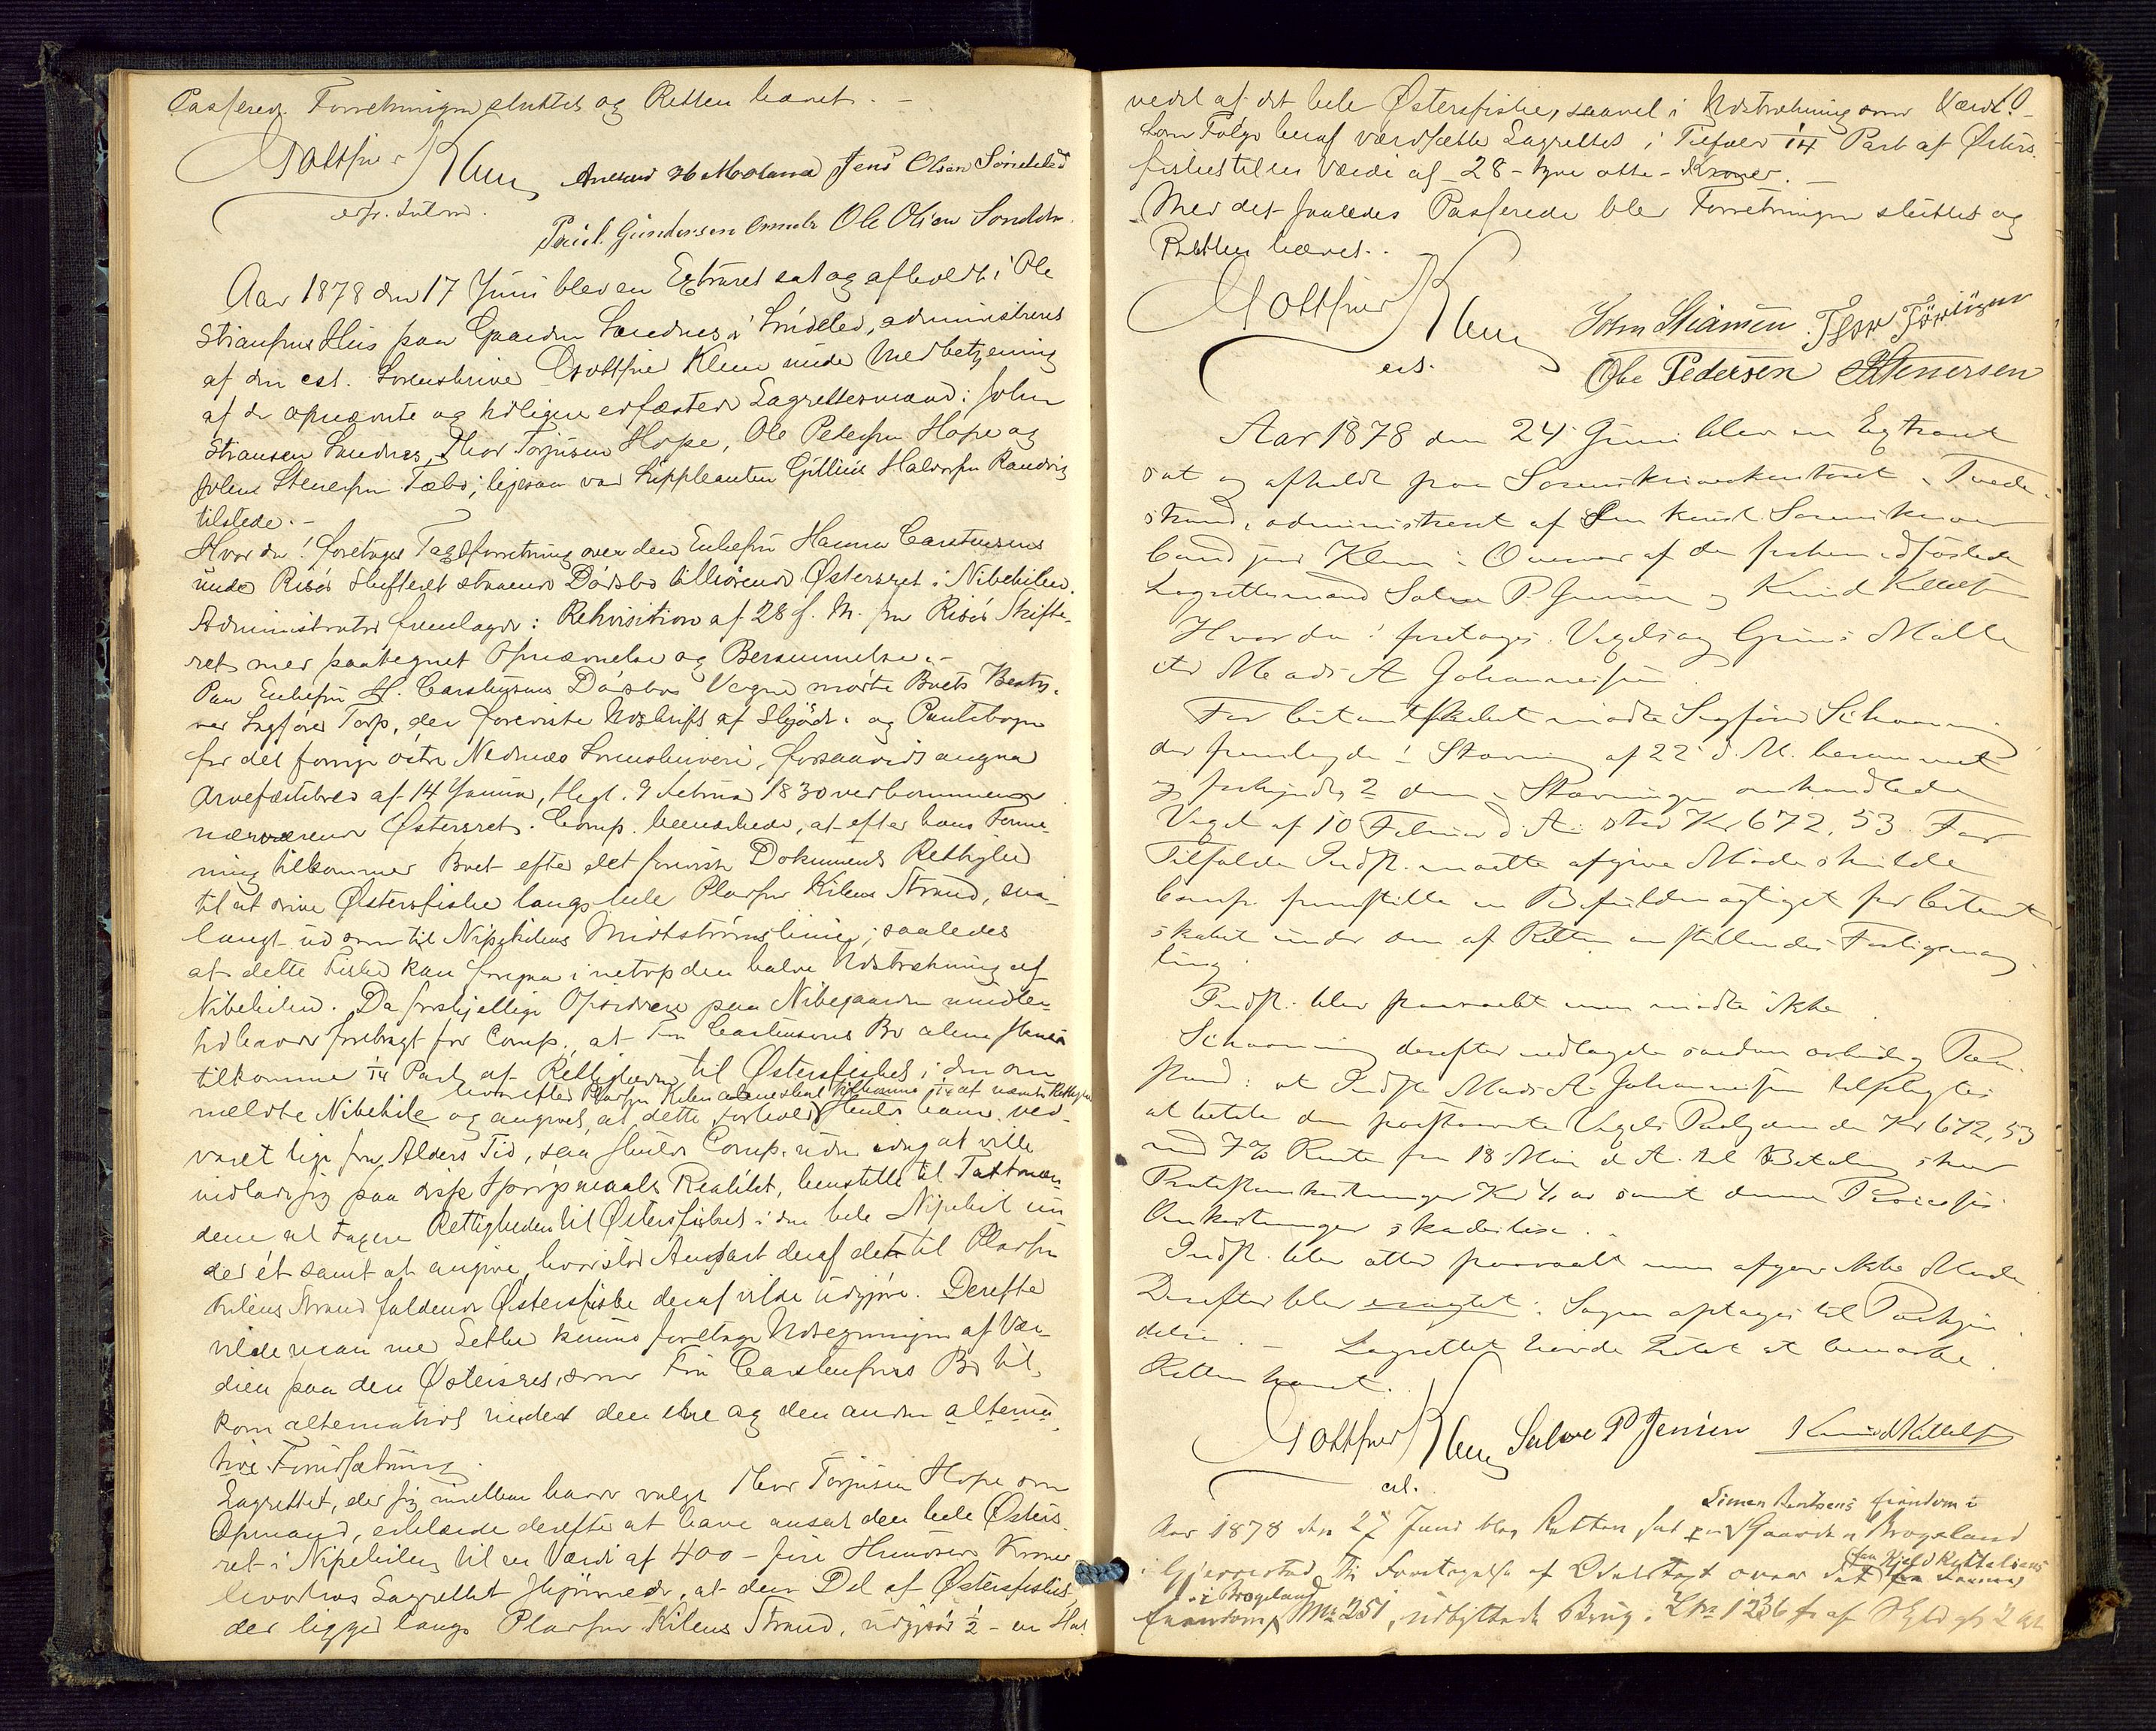 Passerede. Forretningen sluttet og Retten hævet. –
Gottfried Klem Anders H Moland Jens Olsen Søndeled
Poul Gundersen Ole Olsen Søndeled
Aar 1878 den 17 Juni blev en Extraret sat og afholdt i Ole
Stiansens Hus paa Gaarden Sandnes i Søndeled, administreret
af den est. Sorenskriver Gottfried Klem under Medbetjening
af de opnævnte og tidligere edfæstede Lagrettesmænd: John
Stiansen Sandnes, Thor Torjusen Hope, Ole Pedersen Hope og
Stenersen Tæbo; ligesaa var Suppleanten Halvorsen Randvig
tilstede. –
Hvorda: foretoges Taxtforretning over den Enkefru Hanna Carstensens
under Risør Skifteret staaende Dødsbo tilhørende Østersret i Nibekilen.
Administrator fremlagde: Rekvisition af 28 f. M. fra Risørs Skifte-
ret med paategnet Opnævnelse og Berammelse. –
Paa Enkefru H. Carstensens Dødsbos Vegne mødte Boets Besty-
rer Sagfører Torp, der foreviste Udskrift af Skjøde- og Pantebogen
for det forrige østre Nednæs Sorenskriveri, forsaavidt angaar
Arvefæstebrev af 14 Januar, thgl. 9 Februar 1830 vedkommende
nærværende Østersret. Comp. bemærkede, at efter hans Forme-
ning tilkommer Boet efter det foreviste Dokument Rettighed
til at drive Østersfiske langs hele Pladsen Kilens Strand, saa-
langt ud som til Nipekilens Midtstrømslinie; saaledes
at dette Fiske kan foregaa i netop den halve Udstrækning af
Nibekilen. Da forskjellige Opsiddere paa Nibegaarden imidler-
tid havde forebragt for Comp. at Fru Carstensens Bo alene skulde
tilkomme 1/14 Part af Rettigheden til Østersfisket i den om-
hvorefter Pladsen Kilen alene skal tilkomme 1/14 af nævnte Rettighed
meldte Nibekile og angivet, at dette Forhold skulde have ved-
varet lige fra Alders Tid, saa skulde Comp. uden idag at ville
indlade sig paa disse Spørgsmaals Realitet, henstille til Taxtmæn-
dene at taxere Rettigheden til Østersfisket i den hele Nipekil un-
der ét samt at angive, hvor stor Anpart deraf det til Pladsen
Kilens Strand faldende Østersfiske deraf vilde udgjøre. Derefter
vilde man med Lethed kunne foretage Udregningen af Vær-
dien paa den Østersret, som Fru Carstensens Bo til-
kom alternativt under den ene og den anden alterna-
tive Forudsætning.
Lagrettet, der sig imellem havde valgt Thor Torjusen Hope som
Opmand, erklærede derefter at have ansat den hele Østers-
ret i Nipekilen til en Værdi af 400 – fire Hundrede Kroner
hvorhos Lagrettet skjønnede, at den Del af Østersfisket,
der ligger langs Pladsen Kilens Strand, udgjør 1/2 – en Hal-
vedel af det hele Østersfiske, saavel i Udstrækning som Værdi.
Som Følge heraf værdsatte Lagrettet i Tilfælde 1/14 Part af Østers-
fisket til en Værdi af 28 – tyve otte – Kroner. –
Med det saaledes Passerede blev Forretningen sluttet og
Retten hævet. .
Gottfried Klem John Stiansen. Thor Torjusen
Ole Pedersen Stenersen
Aar 1878 den 24 Juni blev en Extraret
sat og afholdt paa Sorenskriverkontoret i Tvede-
strand, administreret af den konst. Sorenskriver
Cand jur Klem i Overvær af de forhen edfæstede
Lagrettesmænd Salve P. Jensen og Knud Kittelsen
Hvorda: foretoges Vexelsag Grims Mølle
ctr Mads A Johannessen.
For Citantskabet mødte Sagfører Schonning
der fremlagde 1 Stævning af 22 d. M. berammet
og forkyndt, 2 den i Stævningen omhandlede
Vexel af 10 Februar d. A. stor Kr 672,53. For
Tilfælde Indst. maatte afgive Møde skulde
Comp. fremstille en Befuldmægtiget for Citant-
skabet under den af Retten anstillendes Forligsmæg-
ling.
Indst. blev paaraabt men mødte ikke.
Schonning derefter nedlagde saadan Paa-
stand: at Indst. Mads A. Johannessen tilpligtes
at betale den Vexels Paalydende Kr 672,53
med 7% Rente fra 18 Mai d. A. til Betaling sker
Protestomkostninger Kr samt denne Processes
Omkostninger skadesløst.
Indst. blev atter paaraabt men afgav ikke Møde
Derefter blev eragtet: Sagen optages til Paakjen-
delse. – Lagrettet havde Intet at bemærke.
Retten hævet.
Gottfried Klem Salve P Jensen Knud Kittelsen
Simen Eiendom i
Aar 1878 den 27 Juni blev Retten sat paa Gaarden Brogeland
i Gjerrestad til Foretagelse af Odelstaxt over
i Brogeland
Eiendom, Mno 251, udskiftede Brug, Lno 1236